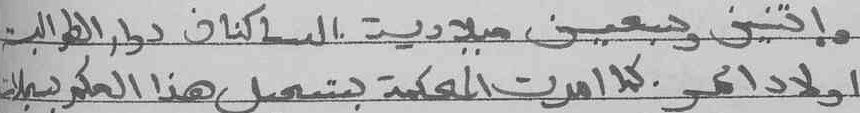 واثنين وسبعين ميلادية. الساكنان دوار الطوالبت
اولاد امحمد. كما امرت المحكمة بتسجيل هذا الحكم بسجلات